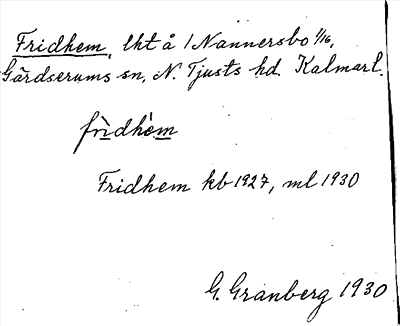 Fridhem, lht å 1 Nannersbo 1/16,
Gärdserums sn, N. Tjusts hd. Kalmar l.
frìdhèm
Fridhem kb 1927, ml 1930
G. Granberg 1930